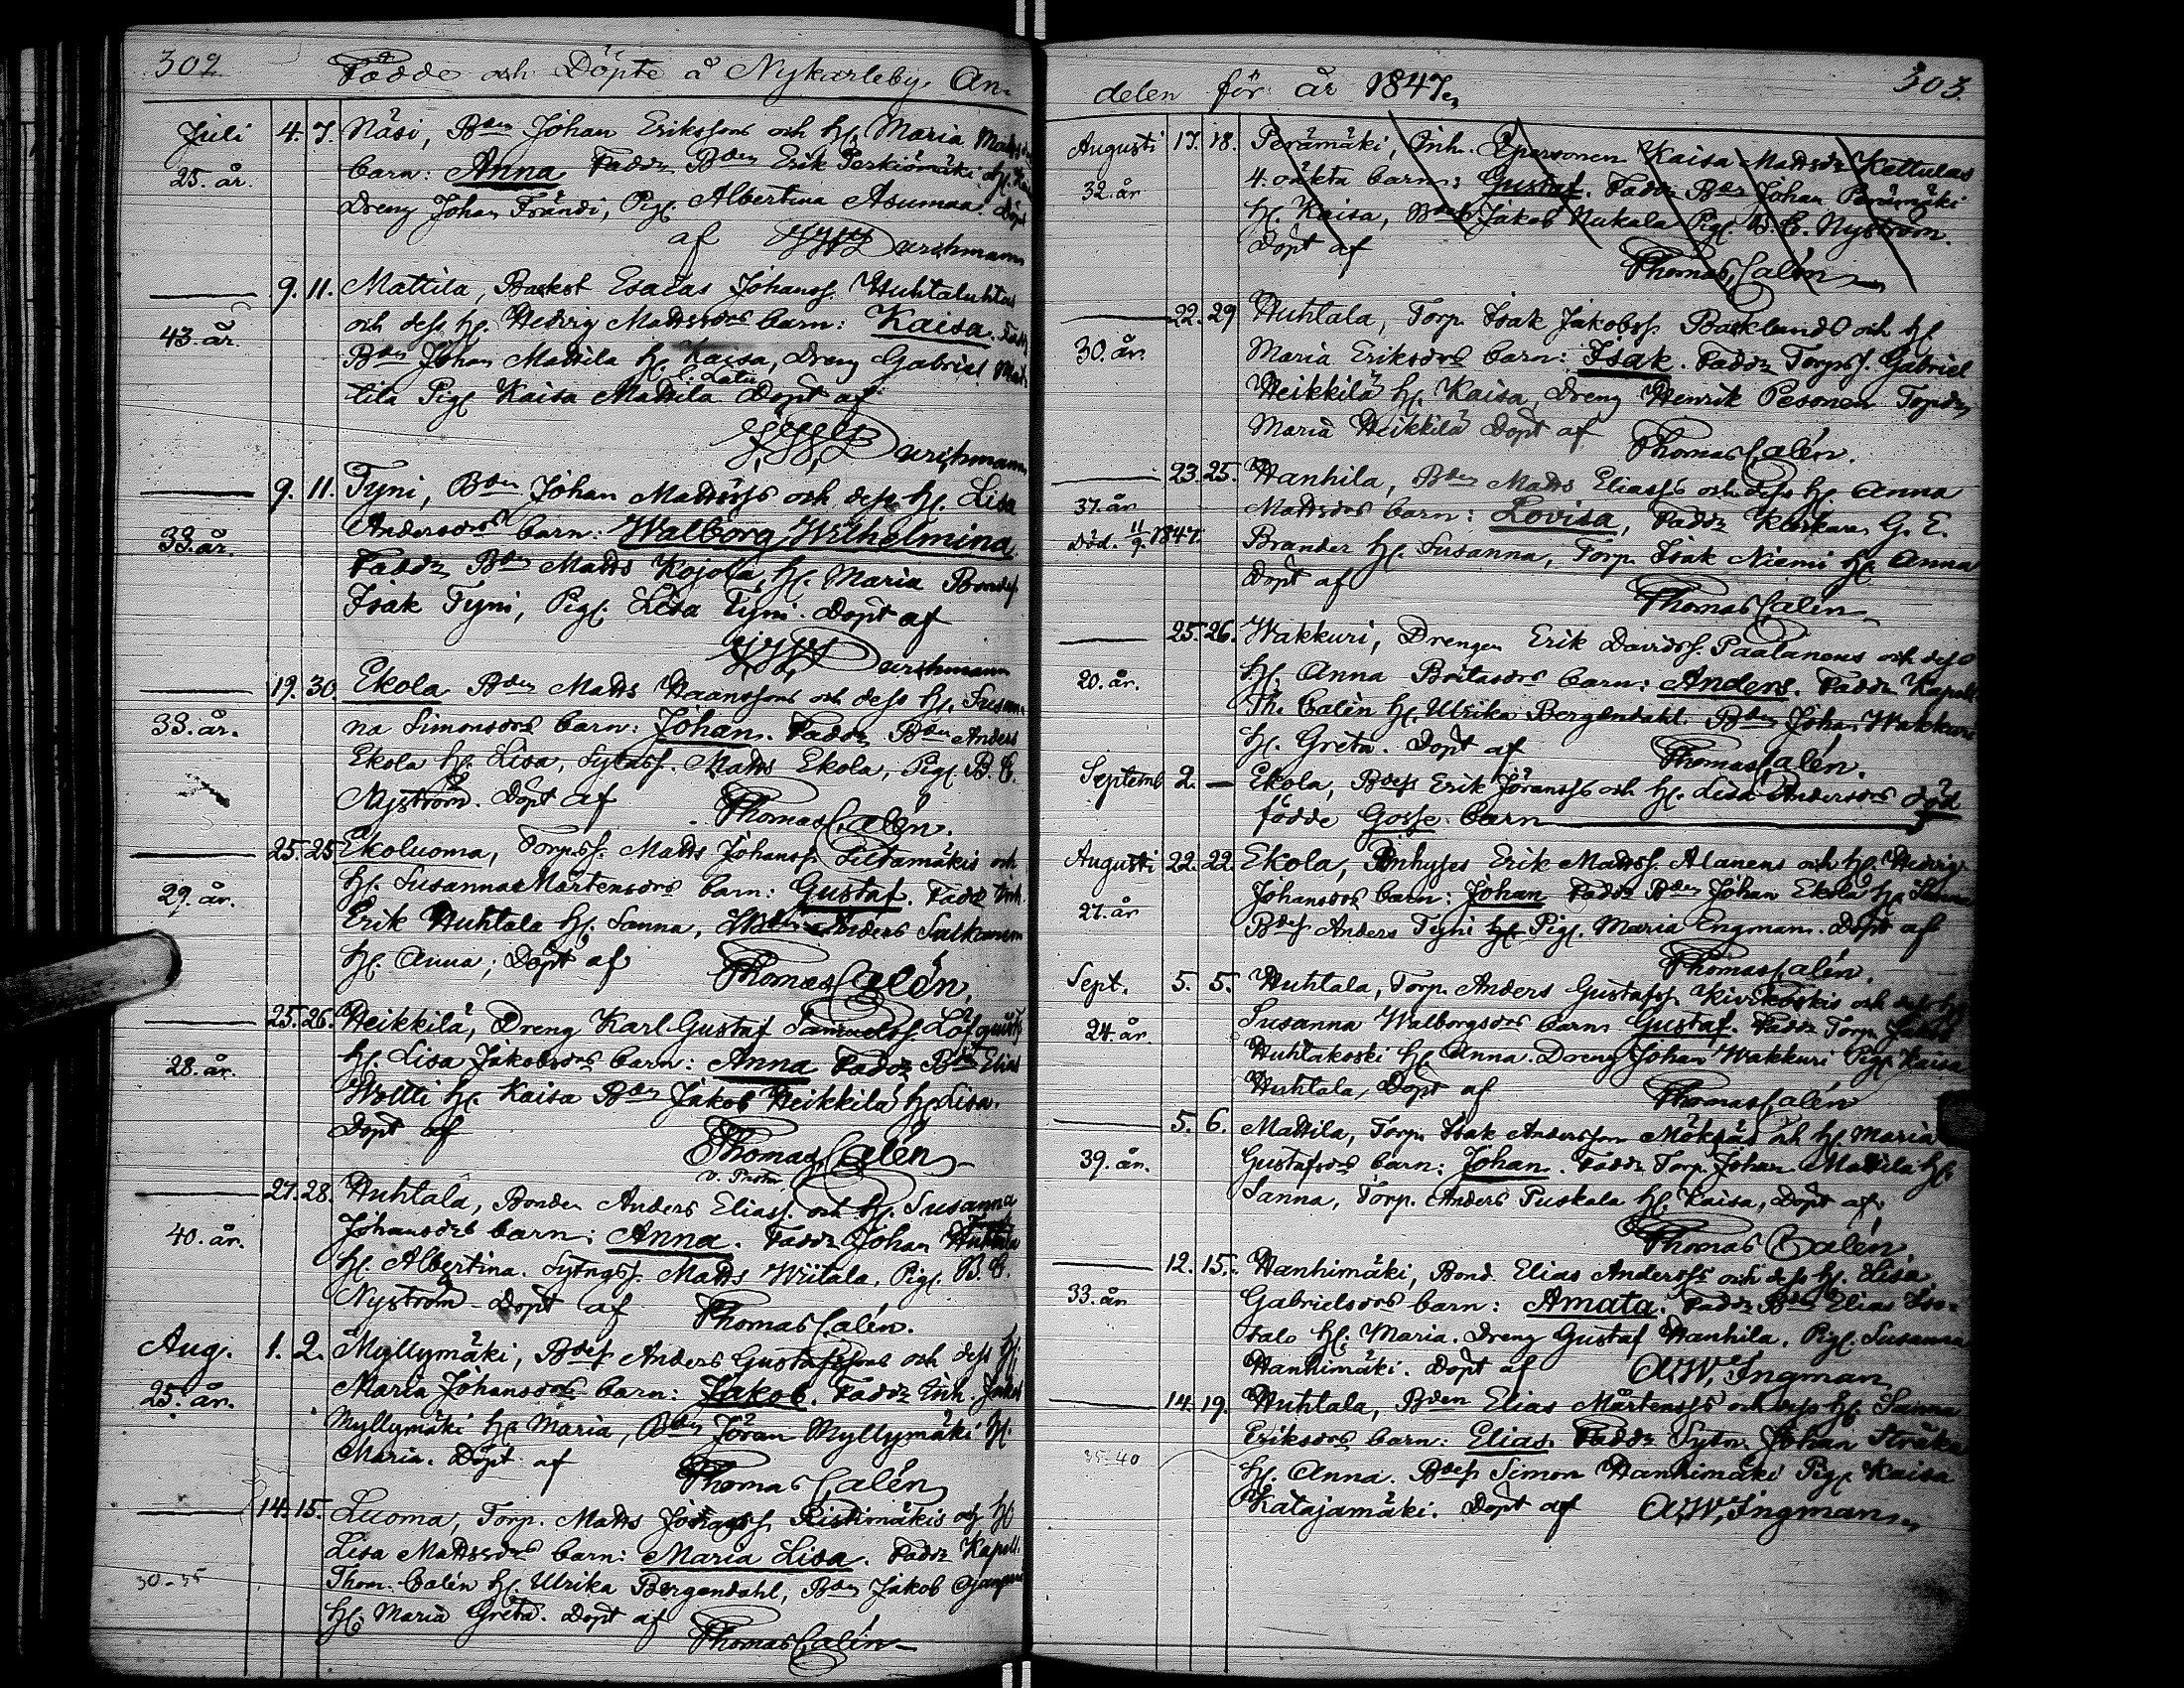 302
Födde och Döpte å Nykarleby An-
Juli 4. 7. Näsi, Bden Johan Erikssons och H. Maria
25. år. barn: Anna Faddr Bden Erik Perkiömäki H.
Dreng Johan Frändi, Pig. Albertina Asumaa. Döpt
af Durchman
9. 11. Mattila, Backst Esaias Johanss. Huhtaluhtas
och dess H. Hedvig Mattsdrs barn: Kaisa. Fadd
43. år. Bden Johan Mattila H. Kaisa, Dreng Gabriel Mat
tila Pig. Kaisa Mattila Döpt af
Durchman
9. 11. Tyni, Bden Johan Mattss och dess H. Lisa
33. år. Andersdrs barn: Walborg Wilhelmina
Faddr Bden Matts Kojola, H. Maria Bondes
Isak Tyni, Pig. Lisa Tyni. Döpt af
Durchman
19. 30. Ekola Bden Matts Haanssons och dess H. Susan-
33. år. na Simonsdrs barn: Johan. Faddr Bden Anders
Ekola H. Lisa, Sytnss. Matts Ekola, Pig. B. C.
Nyström. Döpt af Thomas Calén.
25. 25 Ekoluoma, Torpss. Matts Johanss. Siltamäkis och
29. år. H. Susanna Mårtensdrs barn: Gustaf. Faddr Inh.
Erik Huhtala H. Sanna, Anders
H. Anna; Döpt af Thomas Calén
25. 26. Heikkilä, Dreng Karl Gustaf Samuelss. Löfquists
28. år. H. Lisa Jakobsdrs barn: Anna Faddr Bden Elias
Woltti H. Kaisa Bden Jakob Heikkilä H. Lisa.
Döpt af Thomas Calén
v. Pastor
27. 28. Huhtala, Bonden Anders Eliass. och H. Susanna
40. år. Johansdrs barn: Anna. Faddr Johan Huhtala
H. Albertina. Sytngss. Matts Wiitala, Pig. B. C.
Nyström Döpt af Thomas Calén.
Aug. 1. 2. Myllymäki, Bdes Anders Gustafssons och dess H.
25. år. Maria Johansdrs barn: Jakob. Faddr Inh. Jakob
Myllymäki H. Maria, Bden Jöran Myllymäki H.
Maria. Döpt af Thomas Calén
14. 15. Luoma, Torp. Matts Johanss. Ristimäkis och H.
Lisa Mattssdrs barn: Maria Lisa. Faddr Kapell.
30-35 Thom. Calén H. Ulrika Bergendahl, Bden Jakob
H. Maria Greta. Döpt af
Thomas Calén
303.
delen för år 1847
Augusti 17. 18. Perämäki, Inh. Qpersonen Kaisa Mattsdr Kettulas
32. år 4. oäkta barn: Gustaf. Faddr Bden Johan Perämäki
H. Kaisa, Bden Jakob Nukala Pig. B. C. Nyström.
Döpt af Thomas Calén
22. 29 Huhtala, Torp. Isak Jakobss. Backlund och H.
30. år. Maria Eriksdrs barn: Isak. Faddr Torpss. Gabriel
Heikkilä H. Kaisa, Dreng Henrik Pesonen Torpdr
Maria Heikkilä Döpt af Thomas Calén.
23. 25. Hanhila, Bden Matts Eliass och dess H. Anna
37. år Mattsdrs barn: Lovisa, Faddr Klockaren G. E.
Död. 11/9. 1847. Brander H. Susanna, Torp. Isak Niemi H. Anna
Döpt af Thomas Calén
25. 26. Wakkuri, Drengen Erik Davidss. Paalanens och dess
20. år. H. Anna Britasdrs barn: Anders. Faddr Kapell.
Th. Calén H. Ulrika Bergendahl. Bden Johan Wakkuri
H. Greta. Döpt af Thomas Calén.
Septemb 2. — Ekola, Bdess Erik Jöranss och H. Lisa Andersdrs död
födde Gosse barn
Augusti 22. 22 Ekola, Inhyses Erik Mattss. Alanens och H. Hedvig
27. år Johansdrs barn: Johan Faddr Bden Johan Ekola H. Sanna
Bdes Anders Tyni Pig. Maria Engman. Döpt af
Thomas Calén.
Sept. 5. 5. Huhtala, Torp. Anders Gustafss. Kivikoskis och dess H.
24. år. Susanna Walborgsdrs barn Gustaf. Faddr Torp. Jakob
Huhtakoski H. Anna. Dreng Johan Wakkuri Pig. Kaisa
Huhtala, Döpt af Thomas Calén
5. 6. Mattila, Torp. Isak Andersson Möksäs och H. Maria
39. år. Gustafsdrs barn: Johan. Faddr Torp. Johan Mattila H.
Sanna, Torp. Anders Tuskala H. Kaisa, Döpt af
Thomas Calén.
12. 15. Hanhimäki, Bond. Elias Anderss och dess H. Lisa
33. år Gabrielsdrs barn: Amata. Faddr Bden Elias Iso-
talo H. Maria. Dreng Gustaf Hanhila. Pig. Susanna
Hanhimäki. Döpt af A. W. Ingman
14. 19. Huhtala, Bden Elias Mårtenss och dess H. Sanna
Eriksdrs barn: Elias. Faddr Sytn. Johan Stråka
35-40 H. Anna. Bdess Simon Hanhimäki Pig. Kaisa
Katajamäki. Döpt af A. W. Ingman